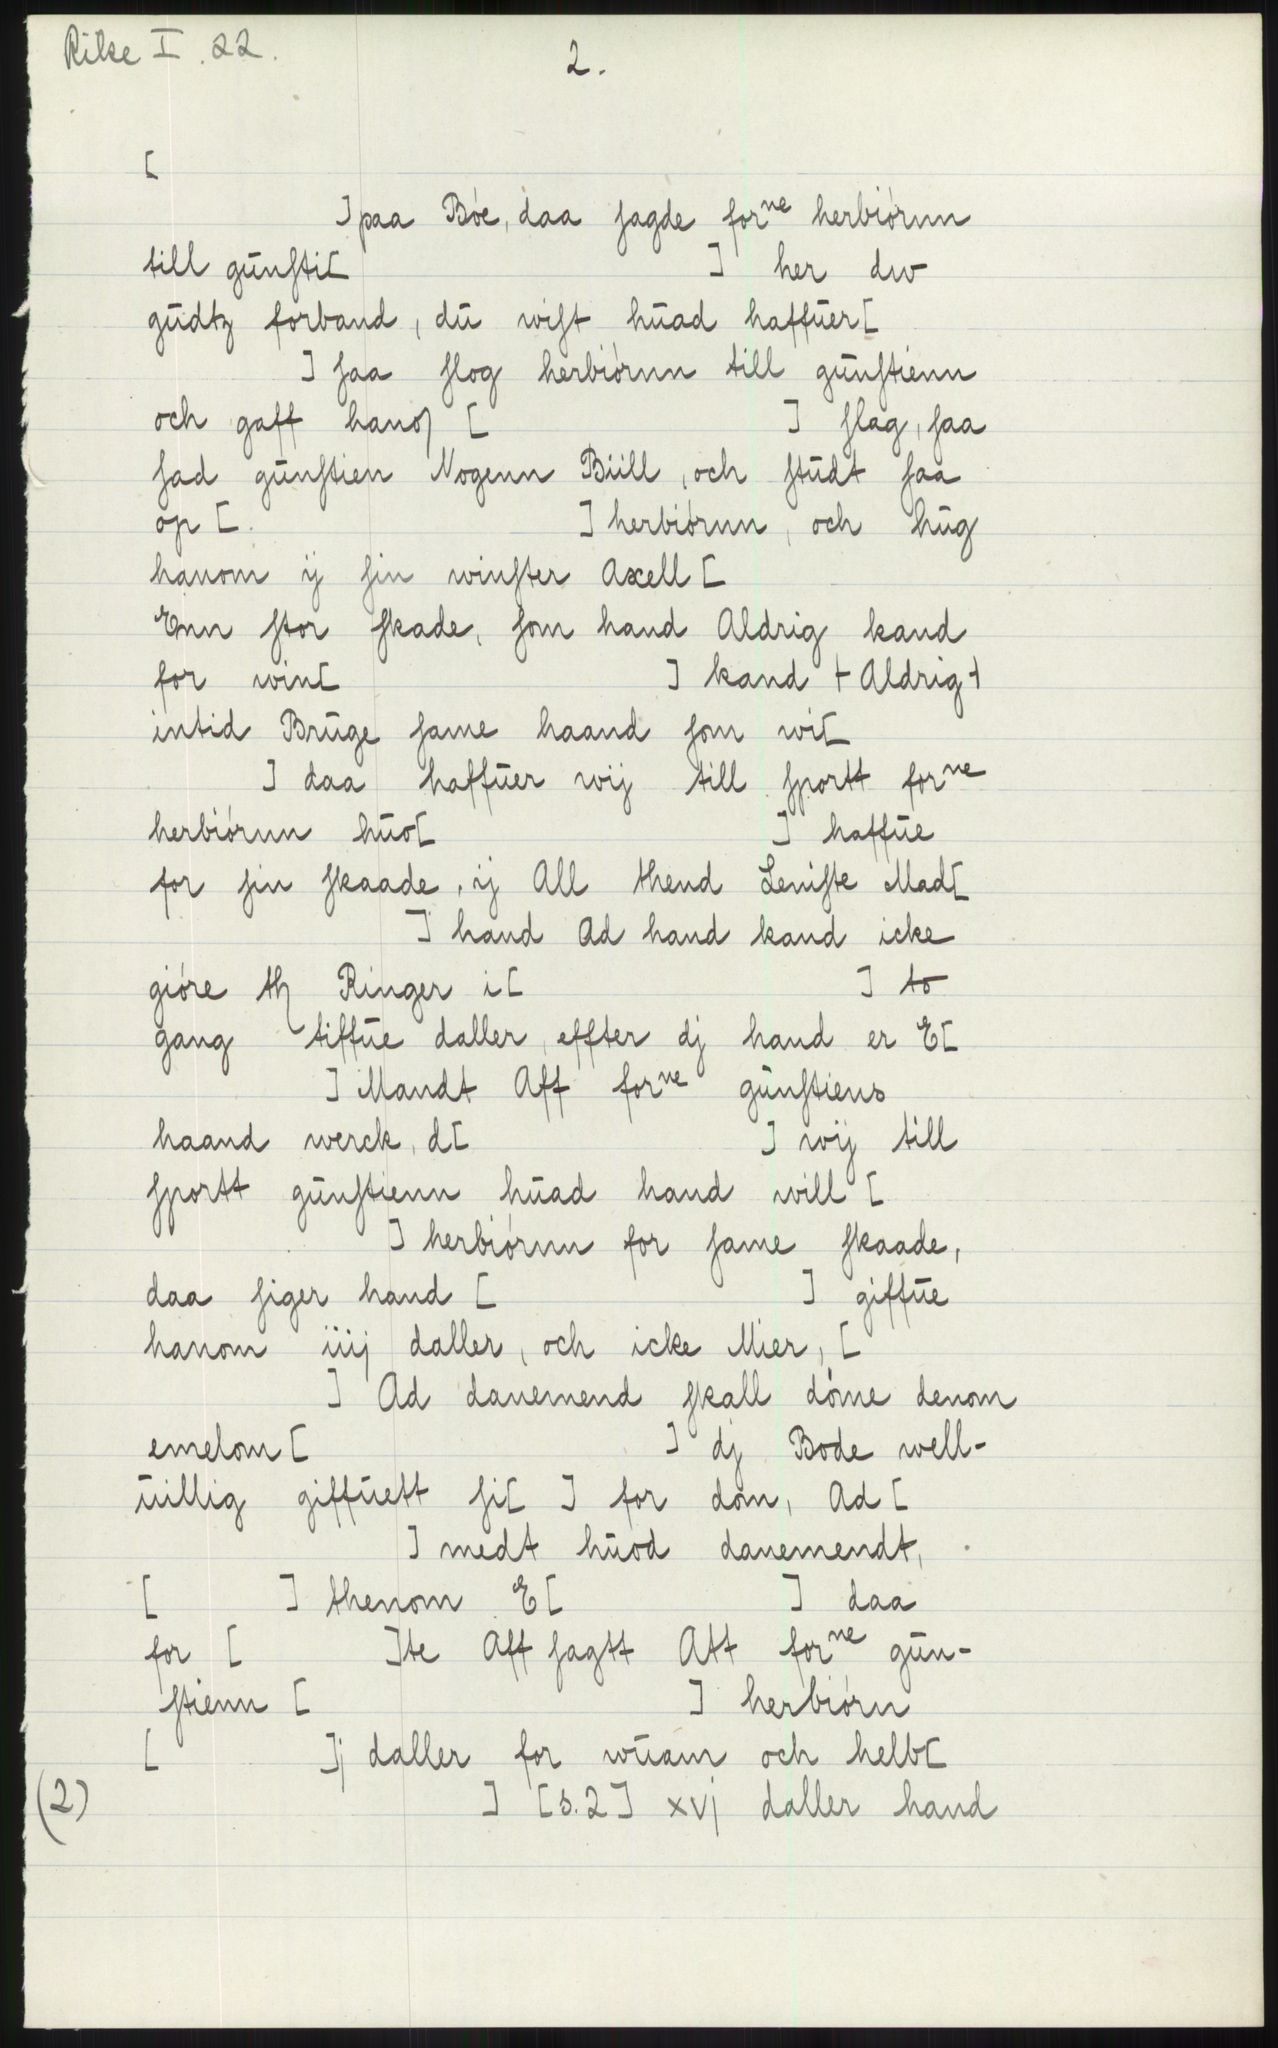 Rike I. 22.
2.
[
] paa Bóe, daa ſagde forne herbiórnn
till gūnſti[ ] her dw
gūdtz forband, dū wiſt hūad haffūer[
] ſaa ſlog herbiórnn till gūnſtienn
och gaff hanoȝ [ ] ſlag, ſaa
ſad gūnſtien Nogenn Biill, och ſtūdt ſaa
op [ ] herbiórnn, och hūg
hanom ij ſin winſter Axell [
Enn ſtor ſkade, ſom hand Aldrig kand
for win[ ] kand + Aldrig +
intid Brūge ſame haand ſom wi[
] daa haffūer wij till ſportt forne
herbiórnn hūo[ ] haffūe
for ſin ſkaade, ij All thend Leniſte Mad[
] hand Ad hand kand icke
gióre thȝ Ringer i[ ] to
gang tiffūe daller, effter dj hand er E[
] Mandt Aff forne gūnſtiens
haand werck, d[ ] wij till
ſportt gūnſtienn hūad hand will [
] herbiórnn for ſame ſkaade,
daa ſiger hand [ ] giffūe
hanom iiij daller, och icke Mier, [
] Ad danemend ſkall dóme denom
emelom [ ] dj Bode well-
ūillig giffūett ſi[ ] for dom, Ad [
] medt hūod danemendt,
[ ] thenom E[ ] daa
for [ ]te Aff ſagtt Att forne gūn-
ſtienn [ ] herbiórn
[ ]j daller for wūam och helb[
(2) ] [s. 2] xvj daller hand